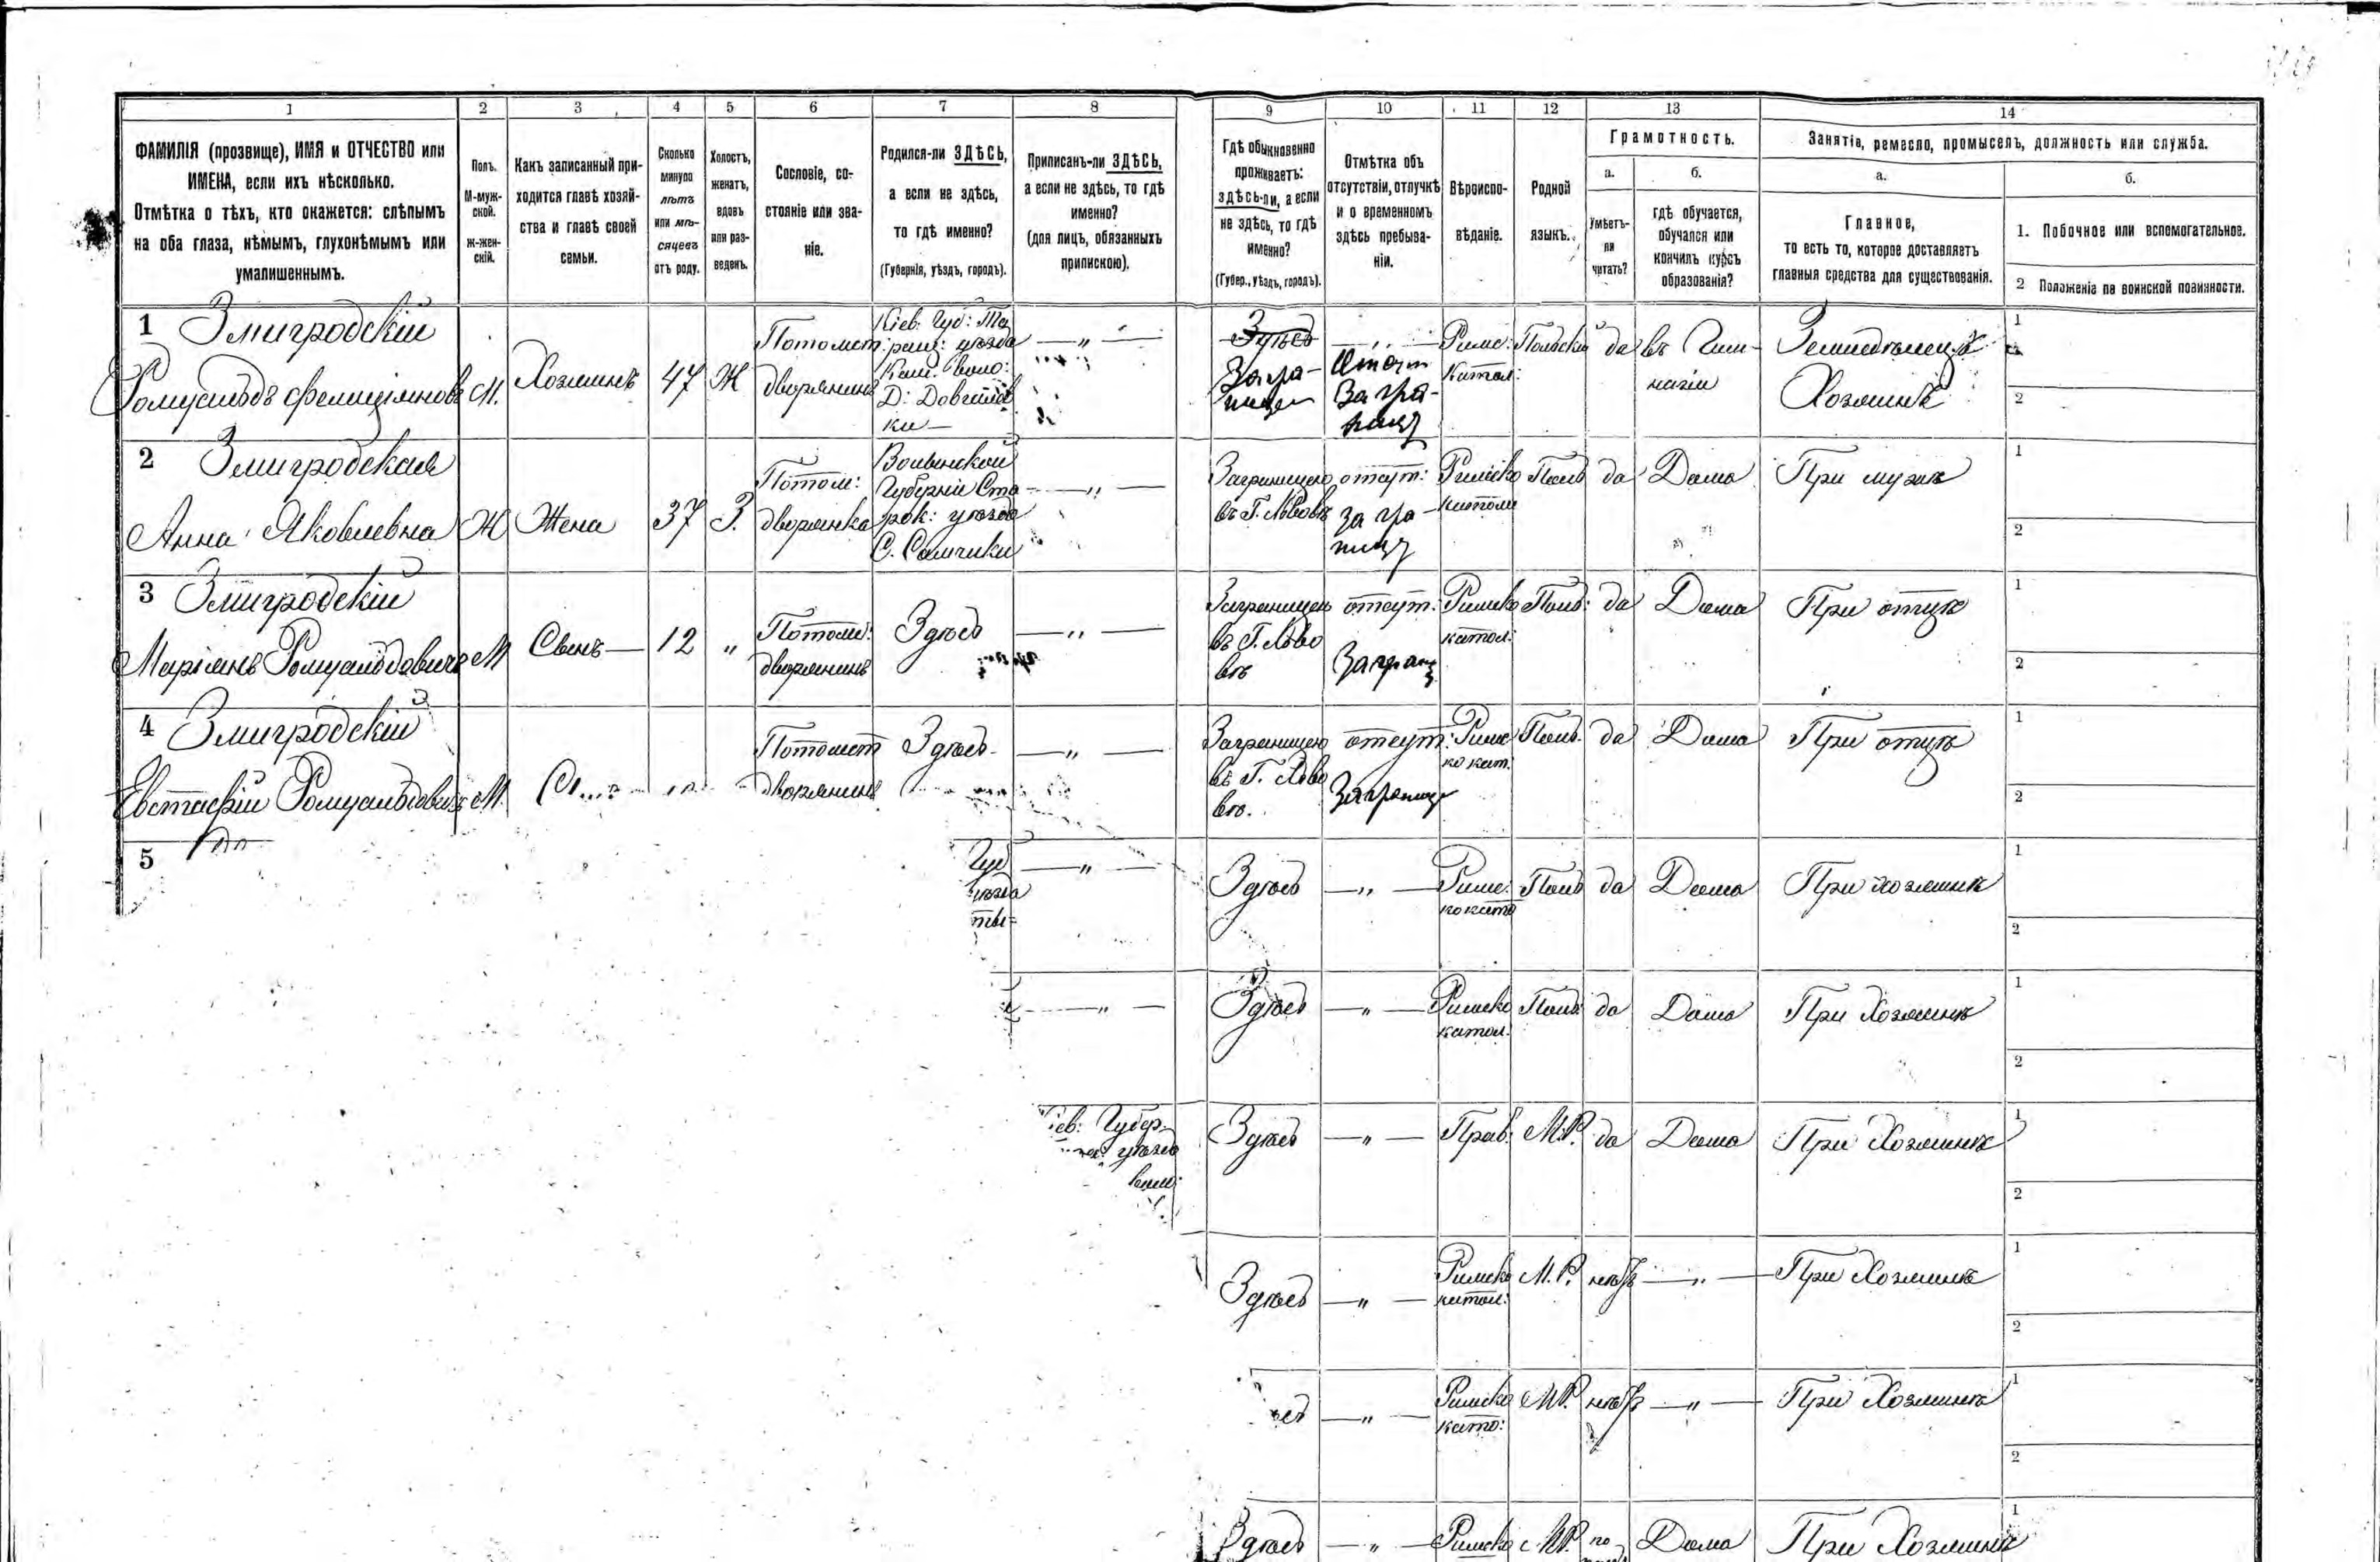 1 2 3 4 5 6 7 8 9 10 11 12 13 14
ФАМИЛІЯ (прозвище), ИМЯ и ОТЧЕСТВО или
ИМЕНА, если ихъ нѣсколько.
Отмѣтка о тѣхъ, кто окажется: слѣпымъ
на оба глаза, нѣмымъ, глухонѣмымъ или
умалишеннымъ.
Полъ.
М-муж-
ской.
Ж-жен-
скій.
Какъ записанный при-
ходится главѣ хозяй-
ства и главѣ своей
семьи.
Сколько
минуло
лѣтъ
или мѣ-
сяцевъ
отъ роду.
Холостъ,
женатъ,
вдовъ
или раз-
веденъ.
Сословіе, со-
стояніе или зва-
ніе.
Родился-ли ЗДѢСЬ,
а если не здѣсь,
то гдѣ именно?
(Губернія, уѣздъ, городъ).
Приписанъ-ли ЗДѢСЬ,
а если не здѣсь, то гдѣ
именно?
(для лицъ, обязанныхъ
припискою).
Гдѣ обыкновенно
проживаетъ:
здѣсь-ли, а если
не здѣсь, то гдѣ
именно?
(Губер., уѣздъ, городъ).
Отмѣтка объ
отсутствіи, отлучкѣ
и о временномъ
здѣсь пребыва-
ніи.
Вѣроиспо-
вѣданіе.
Родной
языкъ.
Грамотность.
а.
Умѣетъ-
ли
читать?
б.
гдѣ обучается,
обучался или
кончилъ курсъ
образованія?
Занятіе, ремесло, промыселъ, должность или служба.
а.
Главное,
то есть то, которое доставляетъ
главныя средства для существованія.
б.
1. Побочное или вспомогательное.
2 Положеніе по воинской повинности.
1 Змигродскій
Ромуальдъ Фелиціановъ
М.
Хозяинъ
47
Ж
Потомст:
дворянинъ
Кіев: Губ: Та
ращ: уѣзда
— „ —
Здѣсь
Загра-
ницей
Отсут
За гра-
ницу
Римс:
Катол:
Польскій
да
въ Гим-
назіи
Земледѣлецъ
Хозяинъ
1
2
2 Змигродская
Анна Яковлевна
Ж
Жена
37
З.
Потом:
дворянка
Волынской
Губерніи Ста
рок: уѣзда
С. Самчики
— „ —
Заграницею
въ Г. Львовѣ
отсут:
За гра-
ницу
Римско
католи
Поль
да
Дома
При мужѣ
1
2
3 Змигродскій
Маріянъ Ромуальдовичъ
М
Сынъ
12
„
Потом:
дворянинъ
Здѣсь
— „ —
Заграницею
въ Г. Льво
вѣ
отсут:
Заграниц
Римско
катол:
Поль:
да
Дома
При отцѣ
1
2
4 Змигродскій
Евстафій Ромуальдович
М.
Потомст
дворянинъ
Здѣсь
— „ —
Заграницею
въ Г. Льво
вѣ.
отсут:
Заграницу
Римс
ко кат.
Поль.
да
Дома
При отцѣ
1
2
5
Губ
уѣзда
— „ —
Здѣсь
— „ —
Римс:
ко като
Поль
да
Дома
При хозяинѣ
1
2
— „ —
Здѣсь
— „ —
Римско
катол.
Поль
да
Дома
При Хозяинѣ
1
2
Губер-
уѣзда
Здѣсь
— „ —
Прав:
М.Р.
да
Дома
При Хозяинѣ
1
2
Здѣсь
— „ —
Римско
катол:
М. Р.
нѣтъ
— „ —
При Хозяинѣ
1
2
— „ —
Римско
като:
М.Р.
нѣтъ
— „ —
При Хозяинѣ
1
2
Здѣсь
— „ —
Римско
М.Р.
Дома
При Хозяинѣ
1